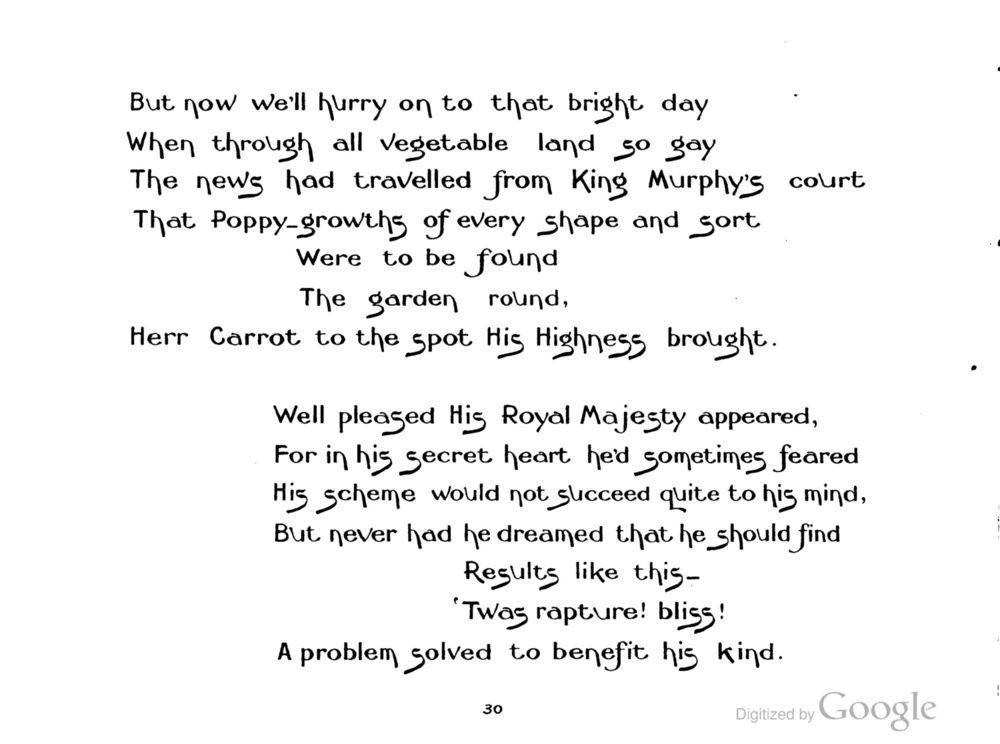 But now we'll hurry on to that bright day
When through all Vegetable land so gay
The news had travelled from King Murphy's court
That Poppy-growths of every shape and sort
Were to be found
The garden round,
Herr Carrot to the spot His Highness brought.
Well pleased His Royal Majesty appeared,
For in his secret heart he'd sometimes feared
His scheme would not succeed quite to his mind,
But never had he dreamed that he should find
Results like this—
'Twas rapture! bliss!
A problem solved to benefit his kind.
30
Digitized by Google